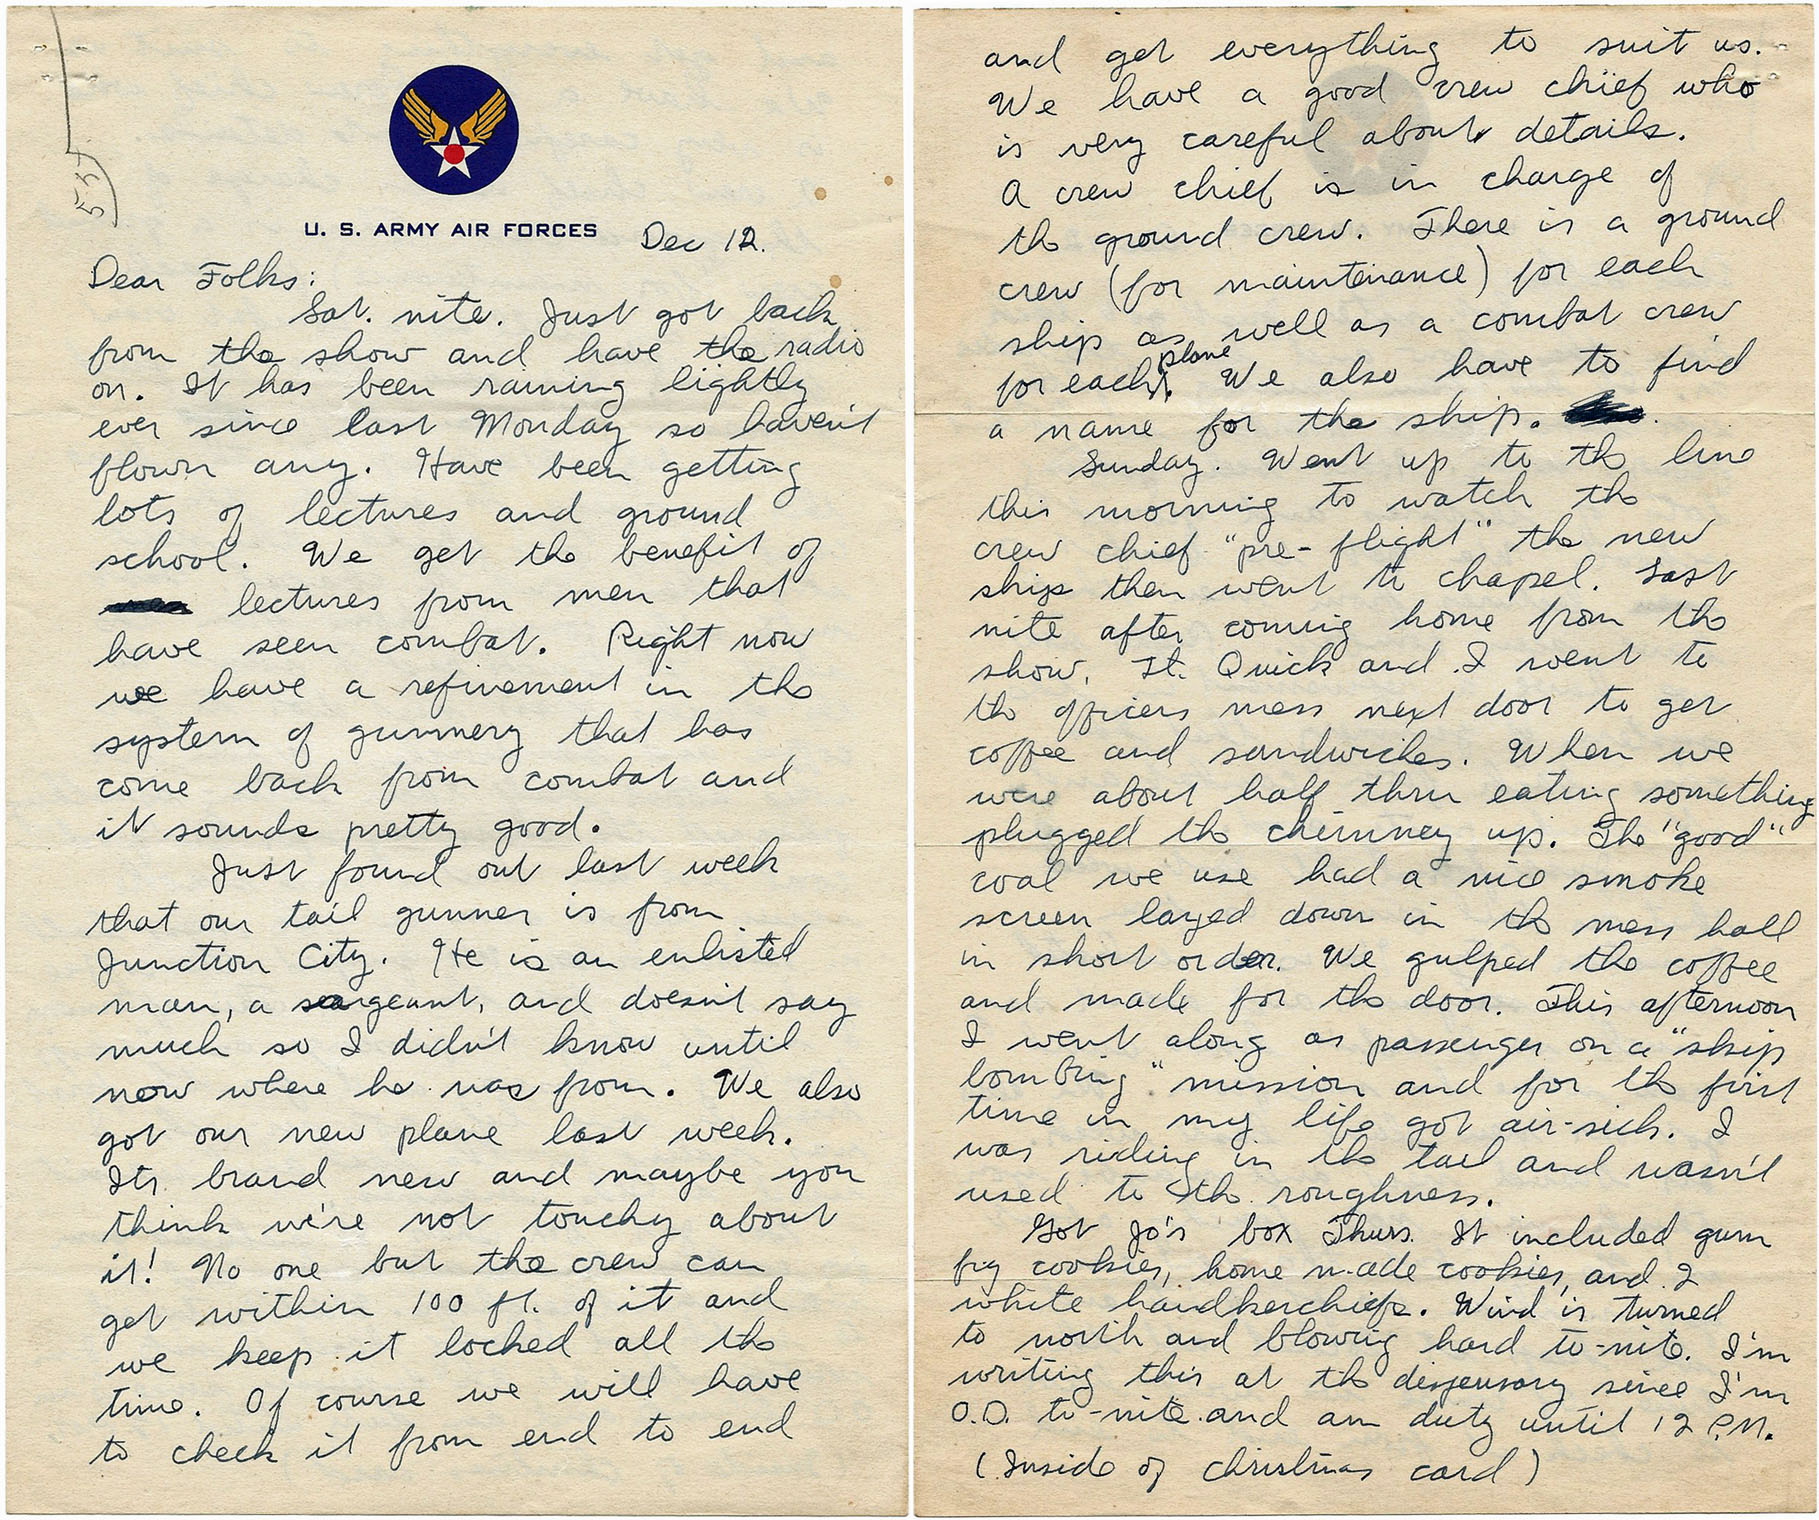 U. S. ARMY AIR FORCES
Dec 12.
Dear Folks:
Sat. nite. Just got back
from the show and have the radio
on. It has been raining lightly
ever since last Monday so haven't
flown any. Have been getting
lots of lectures and ground
school. We get the benefit of
lectures from men that
have seen combat. Right now
we have a refinement in the
system of gunnery that has
come back from combat and
it sounds pretty good.
Just found out last week
that our tail gunner is from
Junction City. He is an enlisted
man, a seargeant, and doesn't say
much so I didn't know until
now where he was from. We also
got our new plane last week.
Its brand new and maybe you
think we're not touchy about
it! No one but the crew can
get within 100 ft. of it and
we keep it locked all the
time. Of course we will have
to check it from end to end
and get everything to suit us.
We have a good crew chief who
is very careful about details.
A crew chief is in charge of
the ground crew. There is a ground
crew (for maintenance) for each
ship as well as a combat crew
for each plane. We also have to find
a name for the ship.
Sunday. Went up to the line
this morning to watch the
crew chief "pre-flight" the new
ship then went to chapel. Last
nite after coming home from the
show, Lt. Quick and I went to
the officers mess next door to get
coffee and sandwiches. When we
were about half thru eating something
plugged the chimney up. The "good"
coal we use had a nice smoke
screen layed down in the mess hall
in short order. We gulped the coffee
and made for the door. This afternoon
I went along as passenger on a "skip
bombing" mission and for the first
time in my life got air-sick. I
was riding in the tail and wasn't
used to the roughness.
Got Jo's box Thurs. It included gum
fig cookies, home made cookies, and 2
white handkerchiefs. Wind is turned
to north and blowing hard to-nite. I'm
writing this at the dispensary since I'm
O.D. to-nite and am duty until 12 P.M.
(Inside of christmas card)